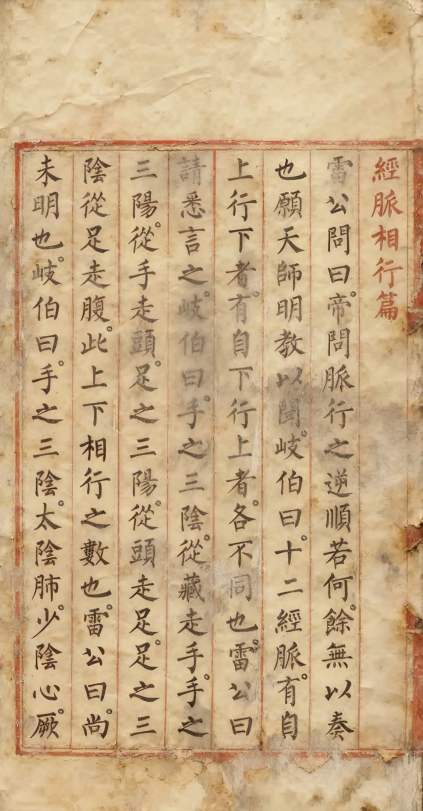 經脈相行篇
雷公問曰帝問脈行之逆順若何。餘無以奏
也願天師明教以聞。岐伯曰十二經脈。有自
上行下者。有自下行上者。各不同也。雷公曰
請悉言之。岐伯曰手之三陰。從藏走手。手之
三陽。從手走頭。足之三陽。從頭走足。足之三
陰從足走腹。此上下相行之數也。雷公曰尚
未明也。岐伯曰手之三陰。太陰肺。少陰心。厥